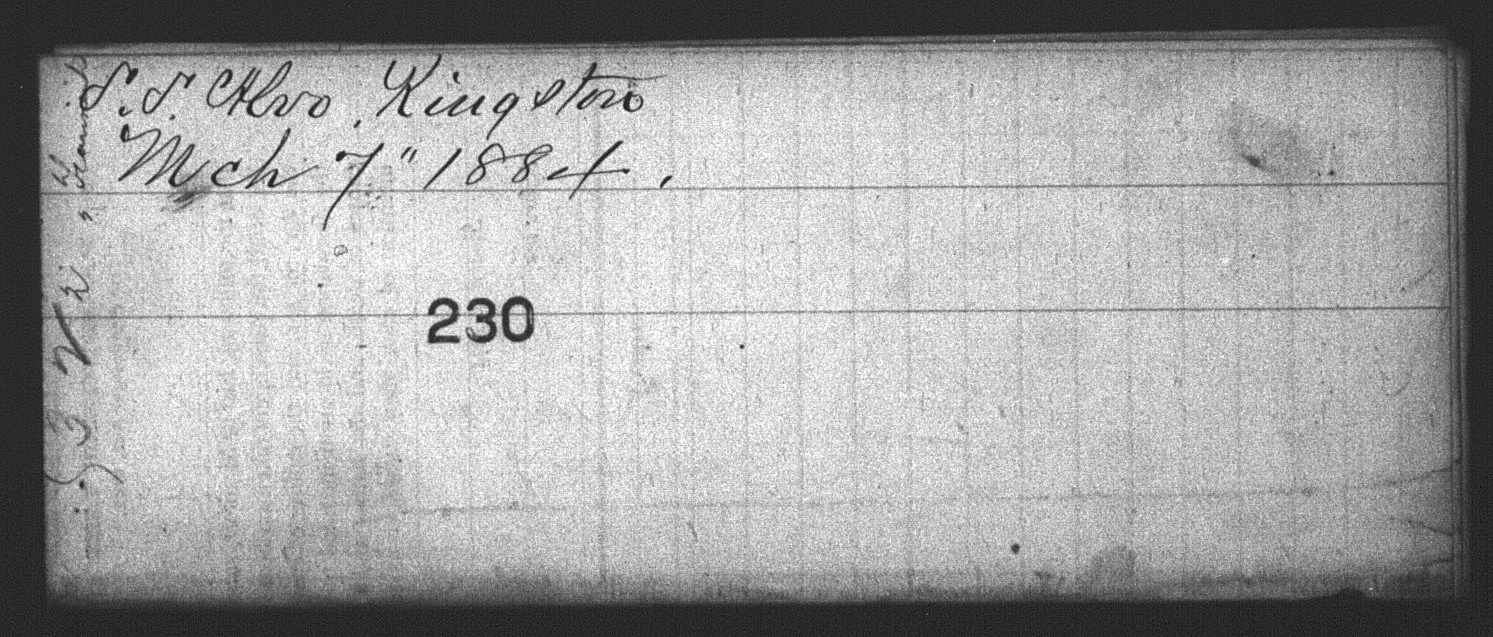 S.S. Alvo, Kingston
Mch 7" 1884.
230